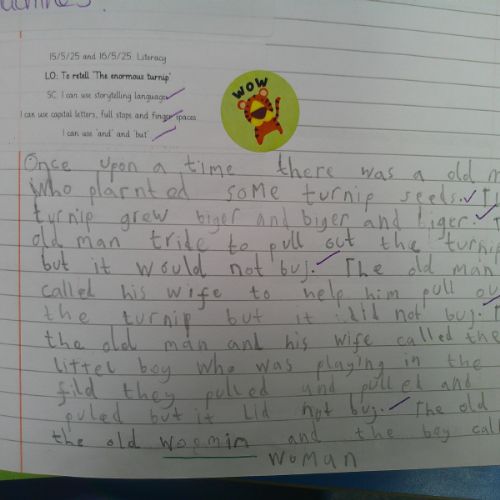 15/5/25 and 16/5/25 Literacy
LO: To retell 'The enormous turnip'
SC: I can use storytelling language
I can use capital letters, full stops and finger spaces
I can use 'and' and 'but'
WOW
Once upon a time there was a old
who plarnted some turnip seeds.
turnip grew biger and biger and biger.
old man tride to pull out the turnip
but it would not buj. The old man
called his wife to help him pull
the turnip but it did not buj.
the old man and his wife called the
littel boy who was playing in the
fild they pulled and pulled and
puled but it did not buj. The old
the old woemin and the boy
woman